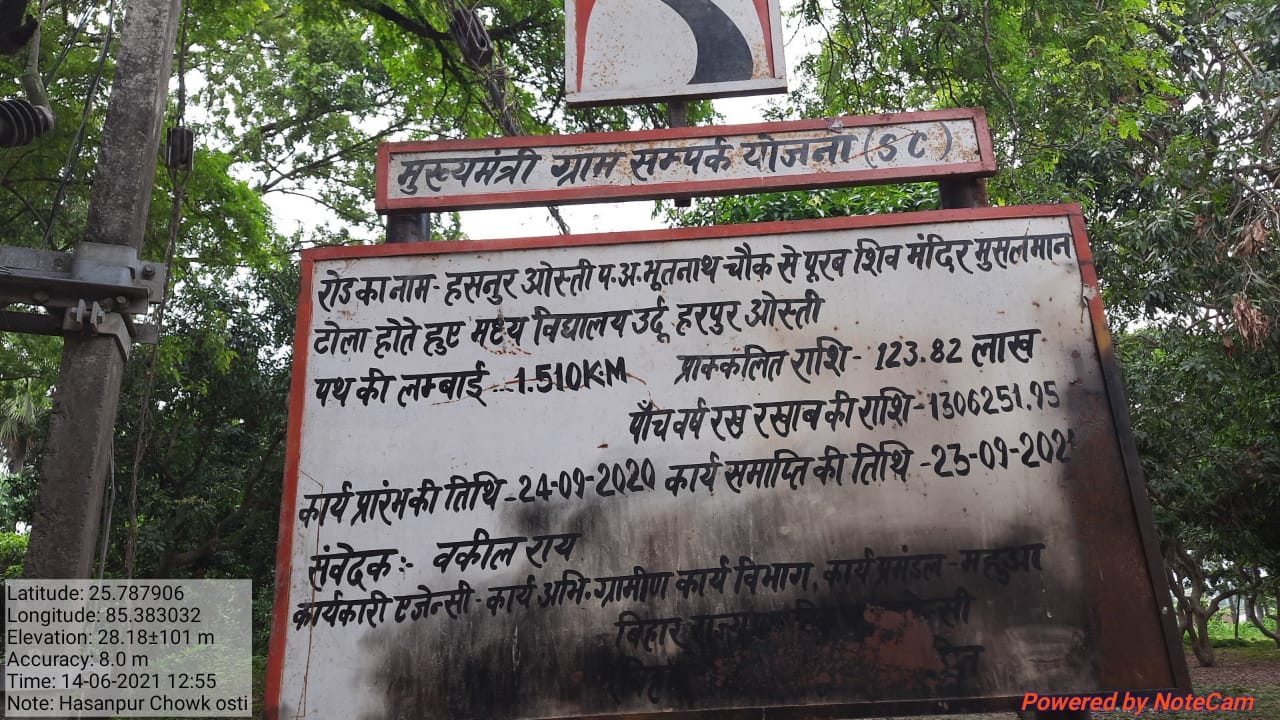 मुख्यमंत्री ग्राम सम्पर्क योजना (SC)
रोड का नाम- हसनुर ओस्ती प.अ.भूतनाथ चौक से पूरब शिव मंदिर मुसलमान
टोला होते हुए मध्य विद्यालय उर्दू हरपुर ओस्ती
पथ की लम्बाई - 1.510K.M प्राक्कलित राशि - 123.82 लाख
पाँच वर्ष रख रखाब की राशि-1306251.95
कार्य प्रारंभ की तिथि -24-09-2020 कार्य समाप्ति की तिथि -23-09-202
संवेदक :- वकील राय
कार्यकारी एजेन्सी - कार्य अभि. ग्रामीण कार्य विभाग, कार्य प्रमंडल - महुआ
बिहार
Latitude: 25.787906
Longitude: 85.383032
Elevation: 28.18±101 m
Accuracy: 8.0 m
Time: 14-06-2021 12:55
Note: Hasanpur Chowk osti
Powered by NoteCam